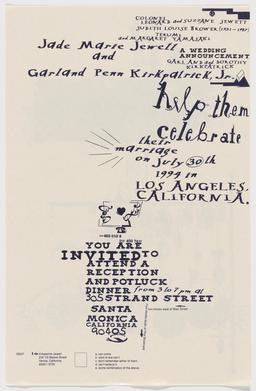 COLONEL
LEONARD and SUZANNE JEWETT
JUDITH LOUISE BROWER (1931-1987)
TERUMI
and MARGARET YAMASAKI
Jade Marie Jewell
A WEDDING
ANNOUNCEMENT
and
GARLAND and DOROTHY
KIRKPATRICK
Garland Penn Kirkpatrick, Jr.
help them
celebrate
their
marriage
on July 30th
1994 in
LOS ANGELES,
CALIFORNIA.
YOU ARE
INVITED TO
ATTEND A
RECEPTION
AND POTLUCK
DINNER from 3 to 7 pm at
305 STRAND STREET
SANTA
MONICA
CALIFORNIA
90405
RSVP